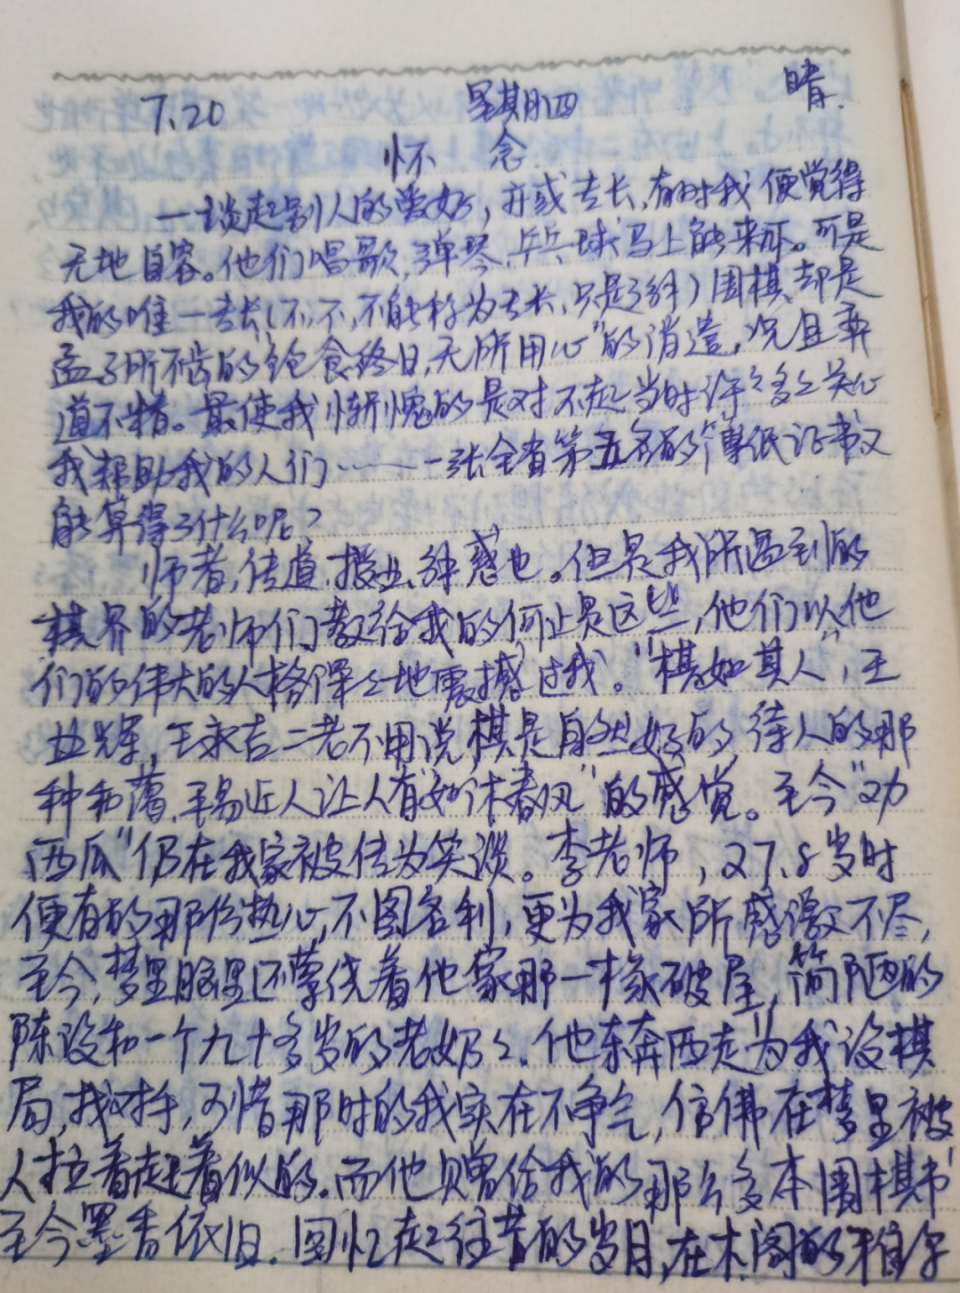 7.20 星期四 晴.
怀 念
一谈起别人的爱好，亦或专长，有时我便觉得
无地自容。他们唱歌，弹琴，乒乓球马上能来耳。可是
我的唯一专长（不，不，不能称为专长，只是了解）围棋，却是
孟子所不齿的饱食终日，无所用心"的消遣，况且弈
道不精。最使我惭愧的是对不起当时许许多多关心
我帮助我的人们……一张全省第五名的薄纸证书又
能算得了什么呢？
师者，传道，授业，解惑也。但是我所遇到的
棋界的老师们教给我的何止是这些，他们以他
们的伟大的人格深深地震撼过我。"棋如其人"，王
业辉，王永吉二老不用说，棋是自然好的，待人的那
种和蔼，平易近人让人有"如沐春风"的感觉。至今"劝
西瓜"仍在我家被传为笑谈。李老师，27.8岁时
便有的那份热心，不图名利，更为我家所感激不尽，
至今，梦里脑里还萦绕着他家那一椽破屋，简陋的
陈设和一个九十多岁的老奶奶。他东奔西走为我设棋
局，找对手，可惜那时的我实在不争气，仿佛在梦里被
人拉着赶着似的。而他赠给我的那么多本围棋书
至今墨香依旧。回忆起往昔的岁月，在木阁的雅字